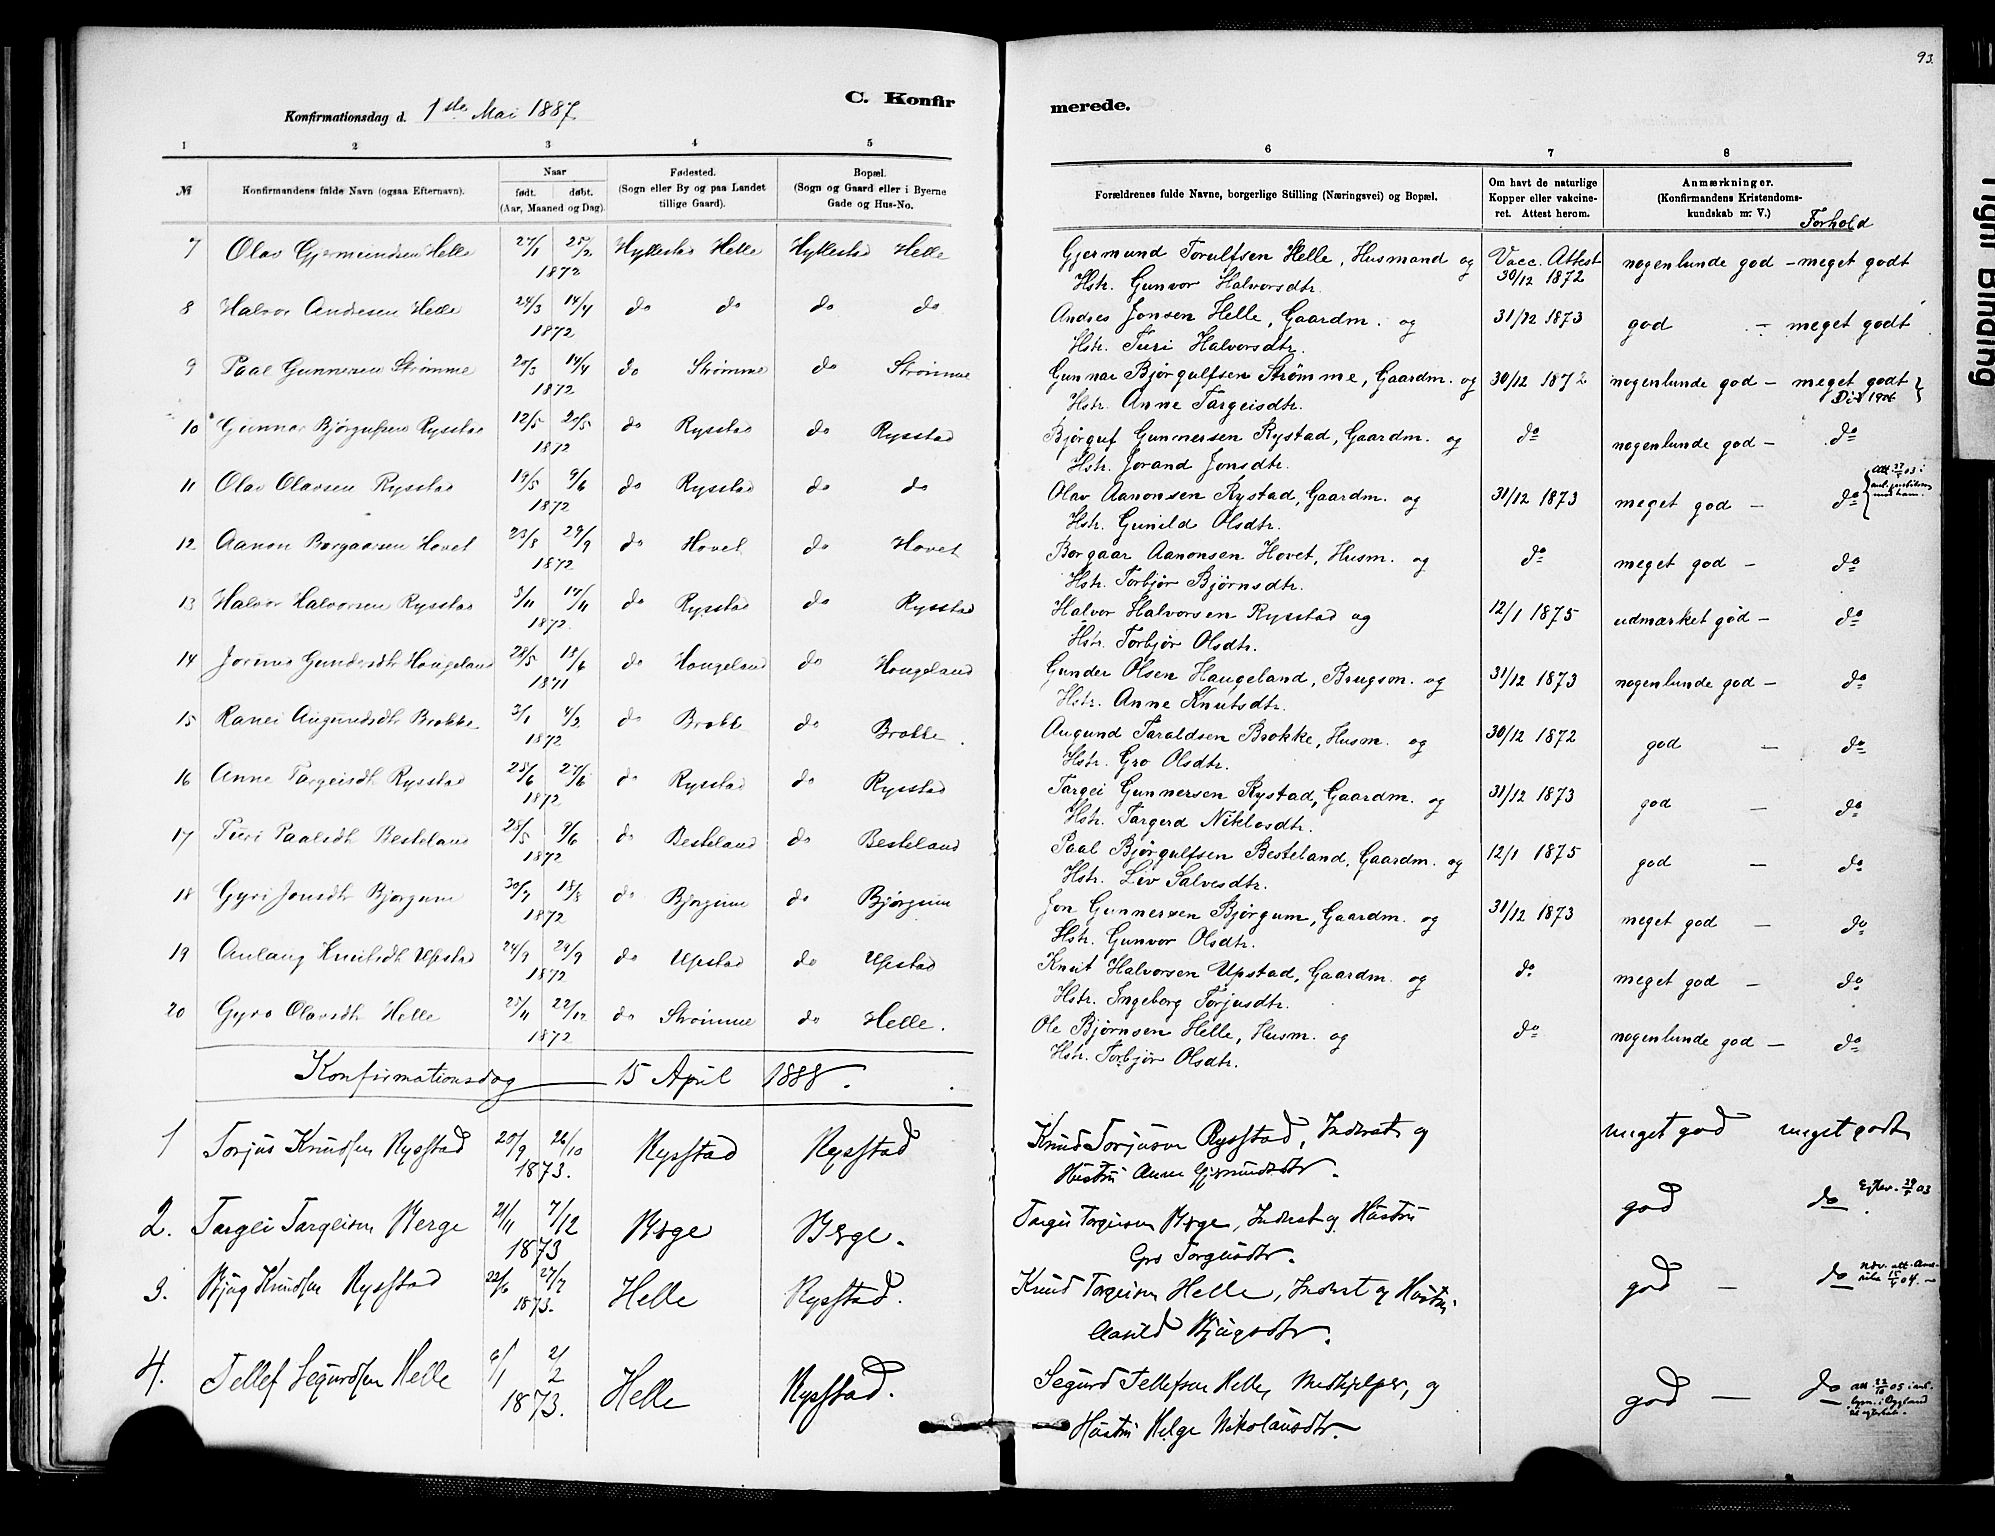 93.
C. Konfir
merede.
Konfirmationsdag d. 1ste Mai 1887
1 2 3 4 5
6 7 8
№ Konfirmandens fulde Navn (ogsaa Efternavn). Naar født. døbt. (Aar, Maaned og Dag). Fødested. (Sogn eller By og paa Landet tillige Gaard). Bopæl. (Sogn og Gaard eller i Byerne Gade og Hus-No.
Forældrenes fulde Navne, borgerlige Stilling (Næringsvei) og Bopæl. Om havt de naturlige Kopper eller vakcineret. Attest herom. Anmærkninger. (Konfirmandens Kristendomskundskab m: V.) Forhold
7 Olav Gjermundsen Helle 27/1 25/2 Hyllestad Helle Hyllestad Helle Gjermund Torulfsen Helle, Husmand og Vacc. Attest nogenlunde god - meget godt
1872 Hstr. Gunvor Halvorsdtr. 30/12 1872
8 Halvor Andresen Helle 24/3 14/4 do do do do Andres Jonsen Helle, Gaardm. og 31/12 1873 god - meget godt
1872 Hstr. Turi Halvorsdtr.
9 Paal Gunnersen Strømme 20/3 14/4 do Strømme do Strømme Gunnar Bjørgulfsen Strømme, Gaardm. og 30/12 1872 nogenlunde god - meget godt
1872 Hstr. Anne Targeisdtr.
10 Gunnar Bjørgufsen Rysstad 12/5 20/5 do Rysstad do Rysstad Bjørguf Gunnersen Rystad, Gaardm. og do nogenlunde god - do
1872 Hstr. Jorand Jonsdtr.
11 Olav Olavsen Rysstad 19/5 9/6 do Rysstad do do Olav Aanonsen Rystad, Gaardm. og 31/12 1873 meget god - do
1872 Hstr. Gunild Olsdtr.
12 Aanon Borgaarsen Hovet 23/8 29/9 do Hovet do Hovet Borgaar Aanonsen Hovet, Husm. og do meget god - do
1872 Hstr. Torbjør Bjørnsdtr.
13 Halvor Halvorsen Rysstad 3/11 17/11 do Rysstad do Rysstad Halvor Halvorsen Rysstad og 12/1 1875 udmærket god - do
1872. Hstr. Torbjør Olsdtr.
14 Gundersdtr Hougeland 28/5 13/6 do Hougeland do Hougeland Gunder Olsen Haugeland, Brugsm. og 31/12 1873 nogenlunde god - do
1871 Hstr. Anne Knutsdtr.
15 Ranei Augundsdtr Brokke 3/1 4/2 do Brokke do Brokke. Augund Taraldsen Brokke, Husm. og 30/12 1872 god - do
1872 Hstr. Gro Olsdtr.
16 Anne Targeisdtr Rysstad do Rysstad do Rysstad Targei Gunnersen Rystad, Gaardm. og 31/12 1873 god - do
1872 Hstr. Targerd Niklosdtr.
17 Turi Paalsdtr Besteland 28/5 9/6 do Besteland do Besteland Paal Bjørgulfsen Besteland, Gaardm. og 12/1 1875 god - do
1872 Hstr. Liv Salvesdtr.
18 Gyri Jonsdtr Bjørgum 30/7 18/8 do Bjørgum do Bjørgum Jon Gunnersen Bjørgum, Gaardm. og 31/12 1873 meget god - do
1872 Hstr. Gunvor Olsdtr.
19 Aulaug Knutsdtr Upstad 24/9 29/9 do Upstad do Upstad Knut Halvorsen Upstad, Gaardm. og do meget god - do
1872 Hstr. Ingeborg Torjusdtr.
20 Gyro Olavsdtr Helle 25/11 22/12 do Strømme do Helle. Ole Bjørnsen Helle, Husm. og do nogenlunde god - do
1872 Hstr. Torbjør Olsdtr.
Konfirmationsdag 15 April 1888.
1 Torjus Knudsen Rysstad 20/9 26/10 Rysstad Rysstad Knud Torjusen Rysstad, Inderst og meget god meget godt
1873. Hustru Anne Gjermundsdtr.
2. Targei Targeisen Berge 21/11 7/12 Berge Berge. Targei Targeisen Berge, Inderst og Hustru god do
1873 Gro Torgusdtr.
3. Bjug Knudsen Rysstad 22/6 27/7 Helle Rysstad. Knud Torgeisen Helle, Inderst og Hustru god - do
1873. Aasild Bjugsdtr.
4. Tellef Segurdsen Helle 6/1 2/2 Helle Rysstad. Segurd Tellefsen Helle, Medhjelper, og god - do
1873. Hustru Helge Nikolausdtr.
Tight Binding